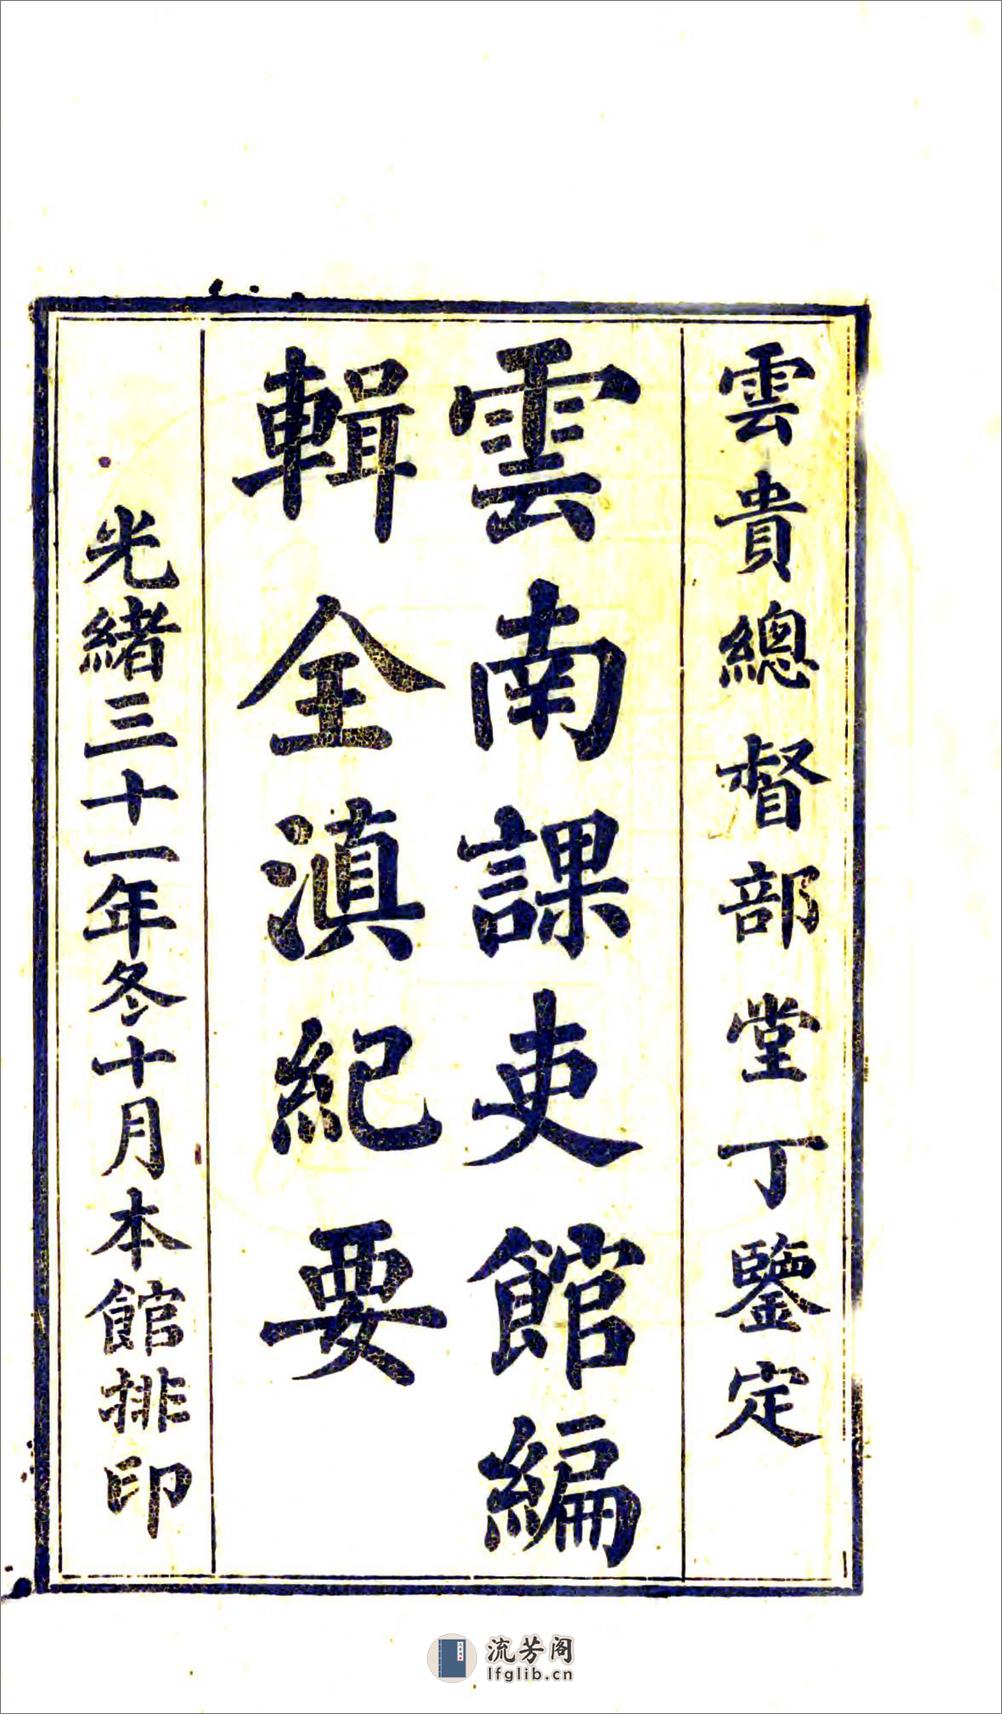 雲貴總督部堂丁鑒定
雲南課吏館編
輯全滇紀要
光緒三十一年冬十月本館排印
流芳阁
lfglib.cn